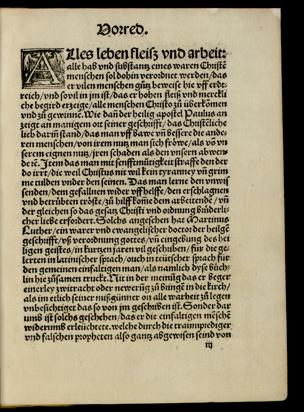 Vorred.
Alles leben fleiß vnd arbeit:
alle hab vnd substantz eines waren Christē
menschen sol dohin verordnet werden/das
er vilen menschen gütz beweise hie vff erdt-
reich/vnd so vil in jm ist/das er hohen fleiß vnd mercklī
che begird erzeige/alle menschen Christo zů überkōmen
vnd zů gewinnē. Wie dañ der heilig apostel Paulus an
zeigt an manigem ort seiner geschrifft/das Christēliche
lieb darin stand/das man vff bawe vñ bessere die ande-
ren menschen/von irem nutz man sich fröwe/als vō vn
serem eignen nutz/jren schaden als den vnsern abwen-
dē. Item das man mit senfftmütigkeit straffe den der
do irrt/die weil Christus nit wil kein tyranney vñ grim
me tilden vnder den seinen. Das man lerne den vnwis
senden/dem gefallnen wider vff helffe/den erschlagnen
vnd betrübten tröste/zů hilff komē dem arbeitende/vñ
der gleichen so das gesatz Christi vnd ordnung brüderli
cher liebe erfordert. Solchs angesehen hat Martinus
Luther/ein warer vnd ewangelischer doctor der heilgē
geschrifft/vß verordnung gottes/vñ eingebung des hei
ligen geistes/in kurtzen jaren vil geschriben/für die ge-
lerten in latinischer sprach/ouch in teütscher sprach für
den gemeinen einfaltigen man/als namlich dyse büch-
lin hie zůsamen truckt. Nit in der meinūg das er beger
einerley zwitracht oder newerūg zů bringē in die kirch/
als im etlich seiner mißgünner on alle warheit zů legen
vnbesichtiget das so von jm geschriben ist. Sonder dar
umb ist solchs geschehen/das er die einfaltigen mēschē
widerumb erleüchtete. welche durch die traumprediger
vnd falschen propheten also gantz abgewisen seind von